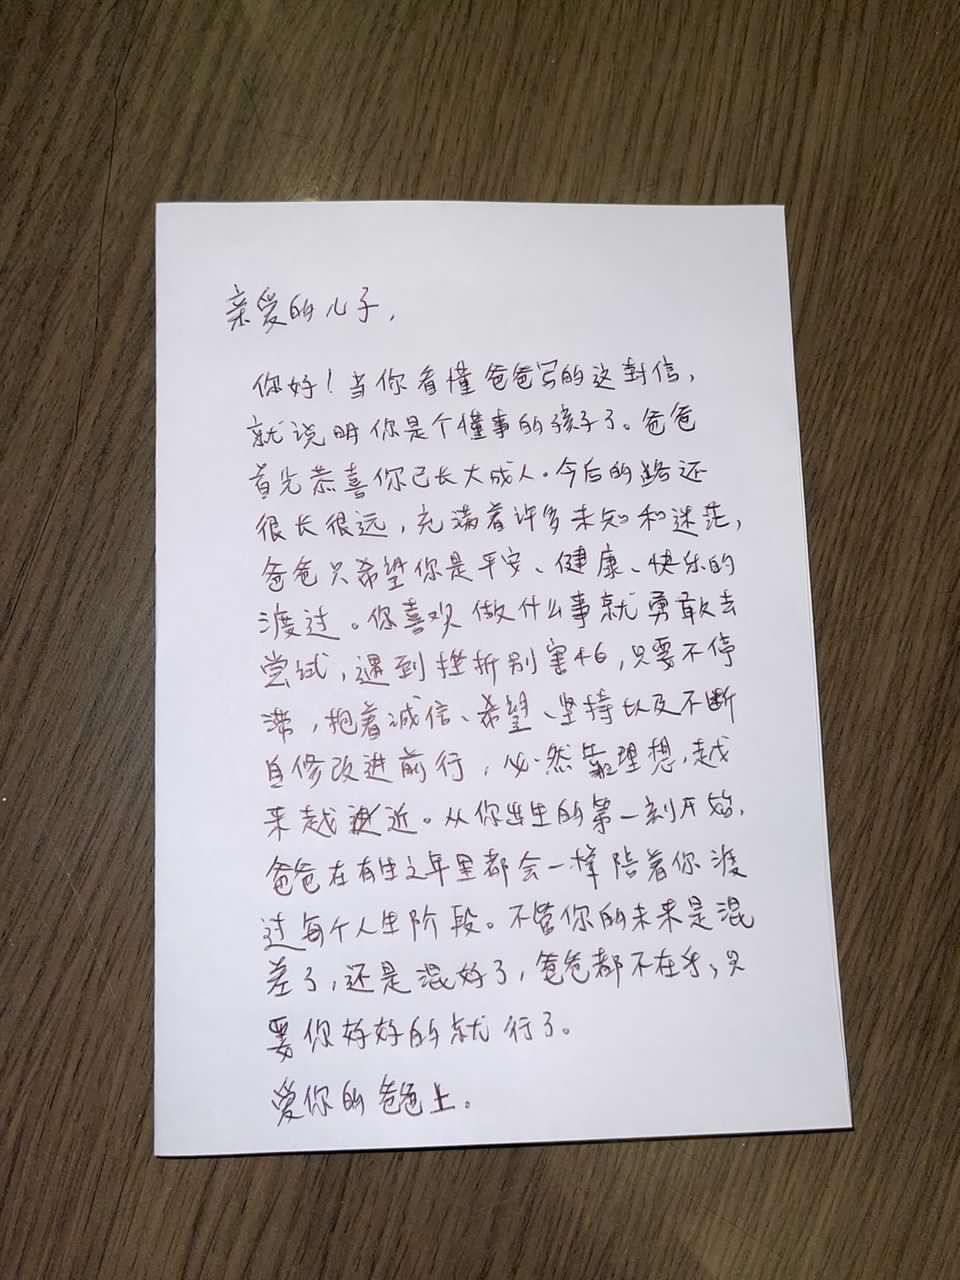 亲爱的儿子，
你好！当你看懂爸爸写的这封信，
就说明你是个懂事的孩子了。爸爸
首先恭喜你已长大成人。今后的路还
很长很远，充满着许多未知和迷茫，
爸爸只希望你是平安、健康、快乐的
渡过。你喜欢做什么事就勇敢去
尝试，遇到挫折别害怕，只要不停
滞，抱着诚信、希望、坚持以及不断
自修改进前行，必然靠理想，越
来越近。从你出生的第一刻开始，
爸爸在有生之年里都会一样陪着你渡
过每个人生阶段。不管你的未来是混
差了，还是混好了，爸爸都不在乎，只
要你好好的就行了。
爱你的爸爸上。